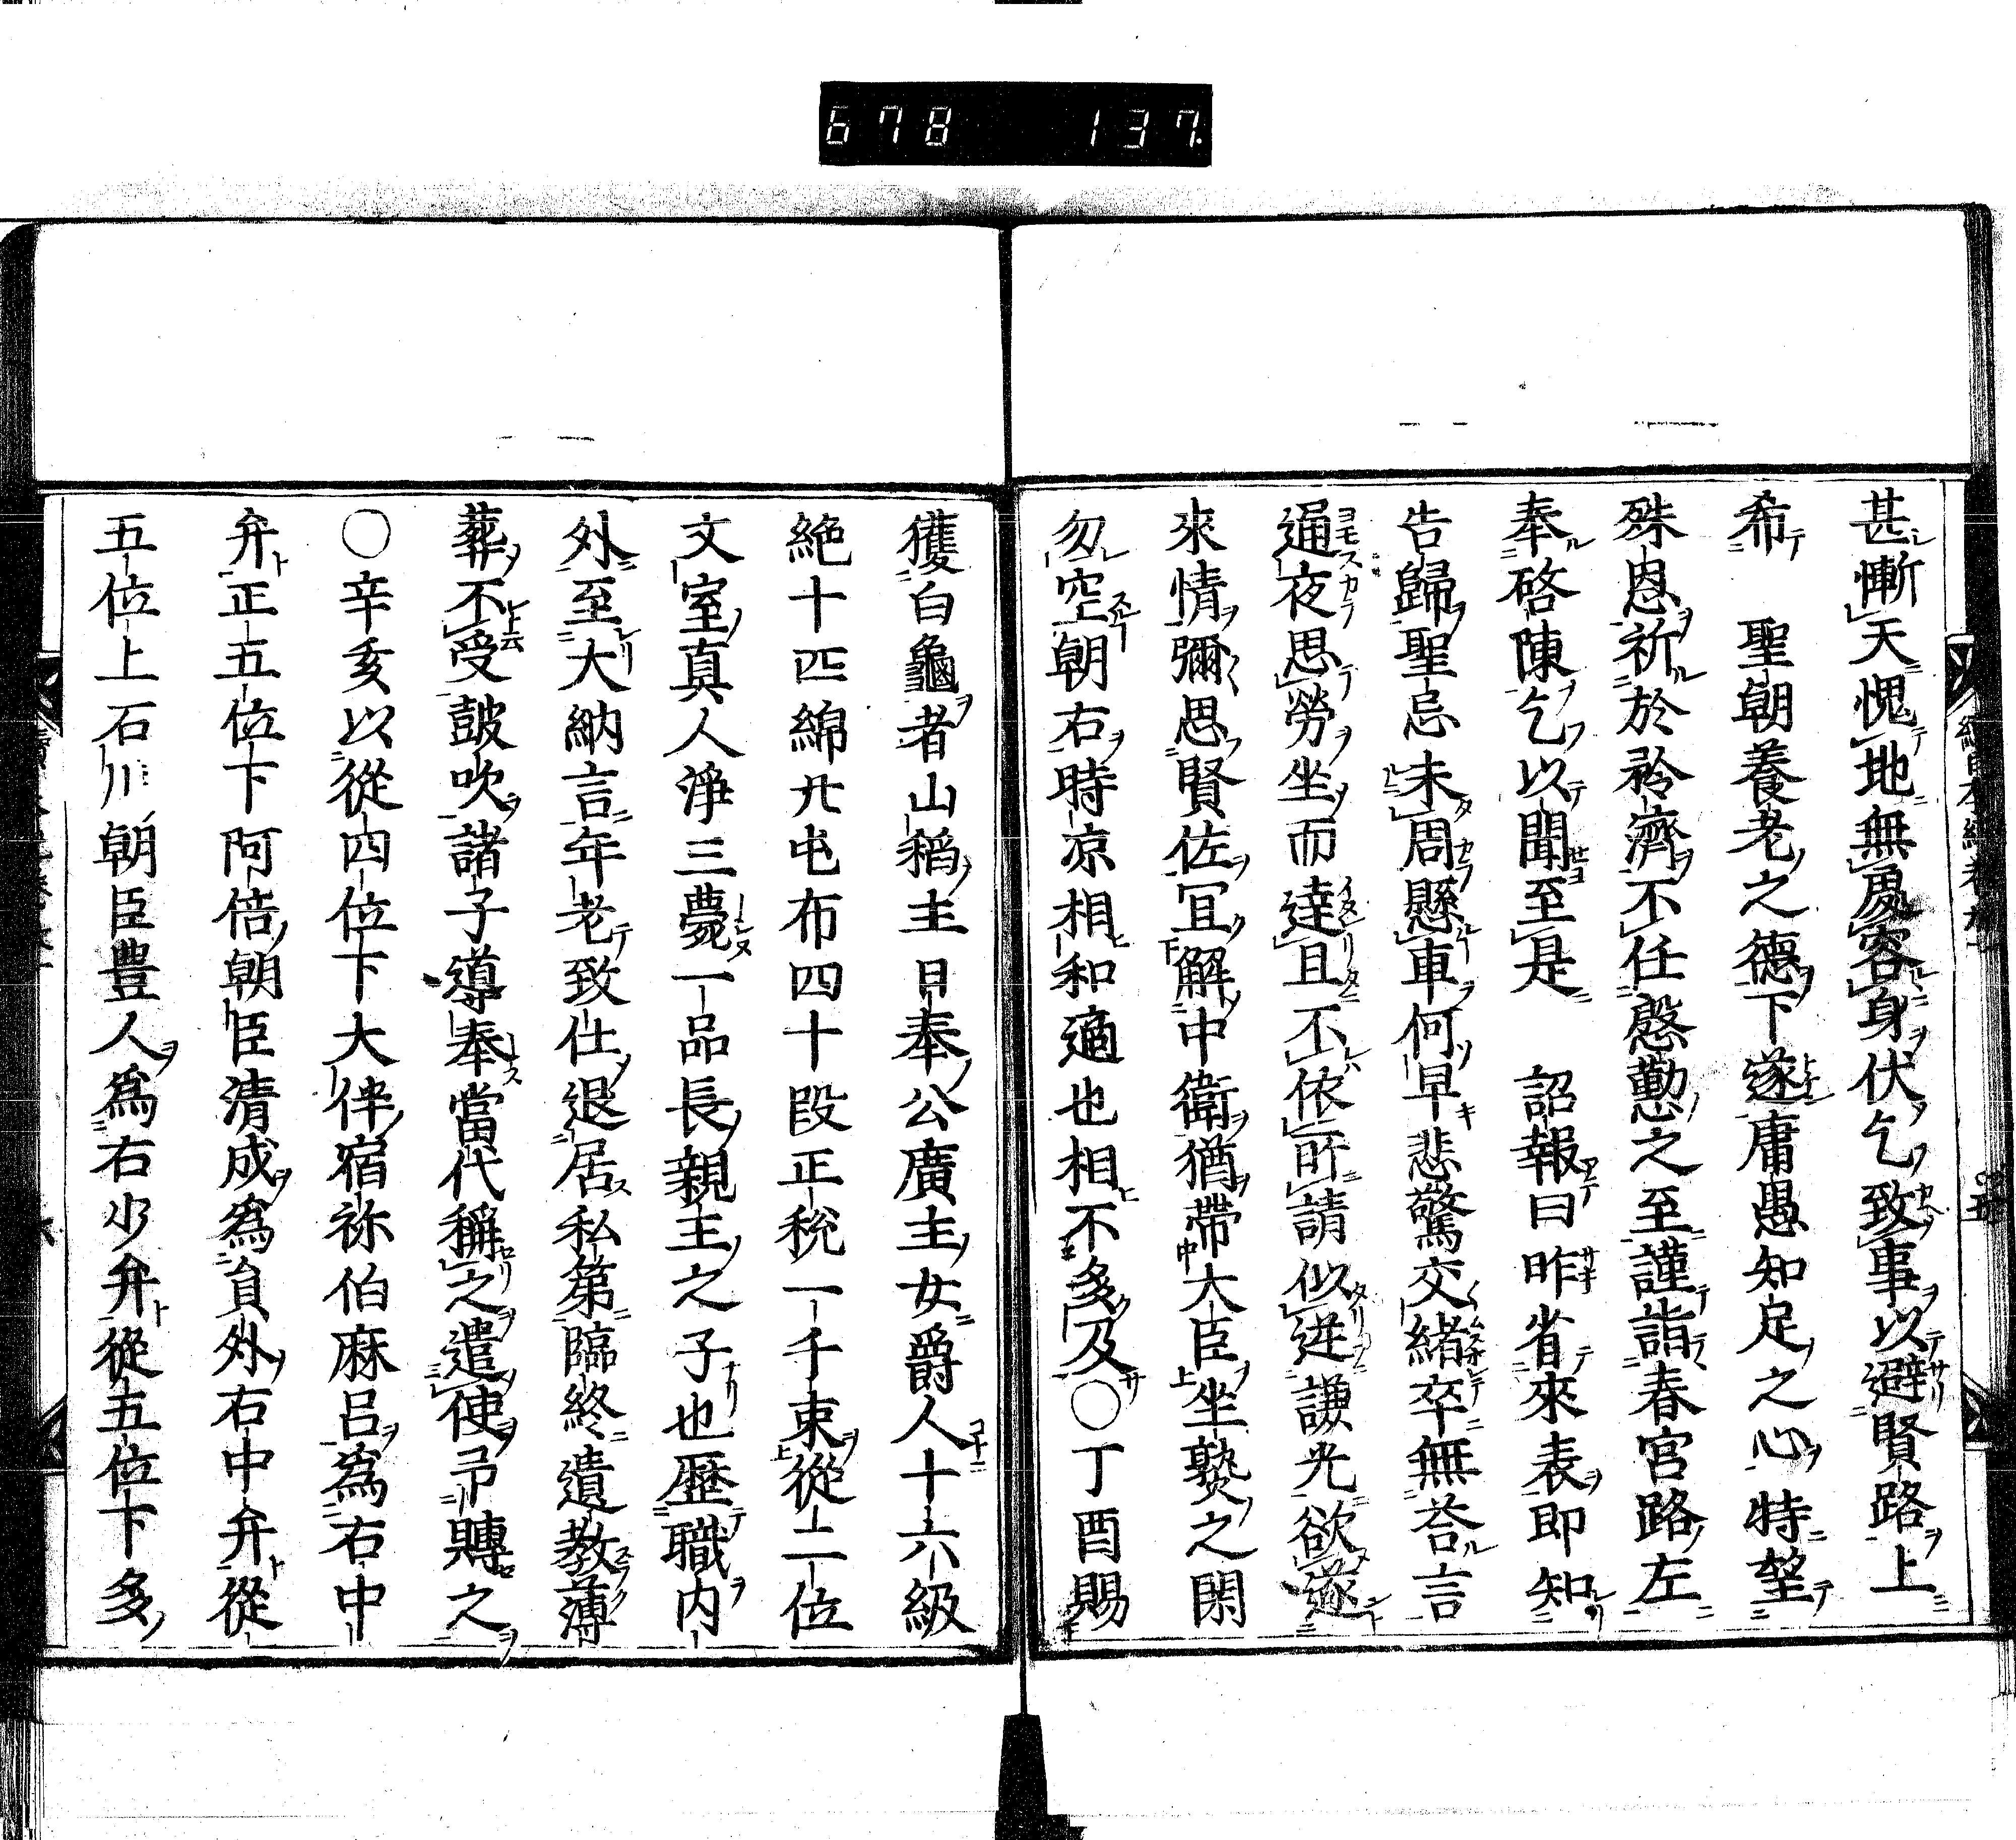 678 137
甚慚天愧地無處容身伏乞致事以避賢路上
希 聖朝養老之德下遂庸愚知足之心特望
殊恩祈於矜濟不任慇懃之至謹詣春宮路左
奉啓陳乞以聞至是 詔報曰昨省來表即知
告歸聖忌未周懸車何早悲驚交緒卒無荅言
通夜思勞坐而達旦不依所請似逆謙光欲遂
來情彌思賢佐冝解中衛猶帶大臣坐褻之閑
勿空朝右時凉相和適也相不多及○丁酉賜
獲白龜者山稻主日奉公廣主女爵人十六級
絁十匹綿廿屯布四十段正稅一千束從二位
文室真人淨三薨一品長親王之子也歷職內
外至大納言年老致仕退居私第臨終遺教薄
葬不受鼓吹諸子導奉當代稱之遣使弔賻之
○辛亥以從四位下大伴宿祢伯麻呂爲右中
弁正五位下阿倍朝臣清成爲員外右中弁從
五位上石川朝臣豊人爲右少弁從五位下多